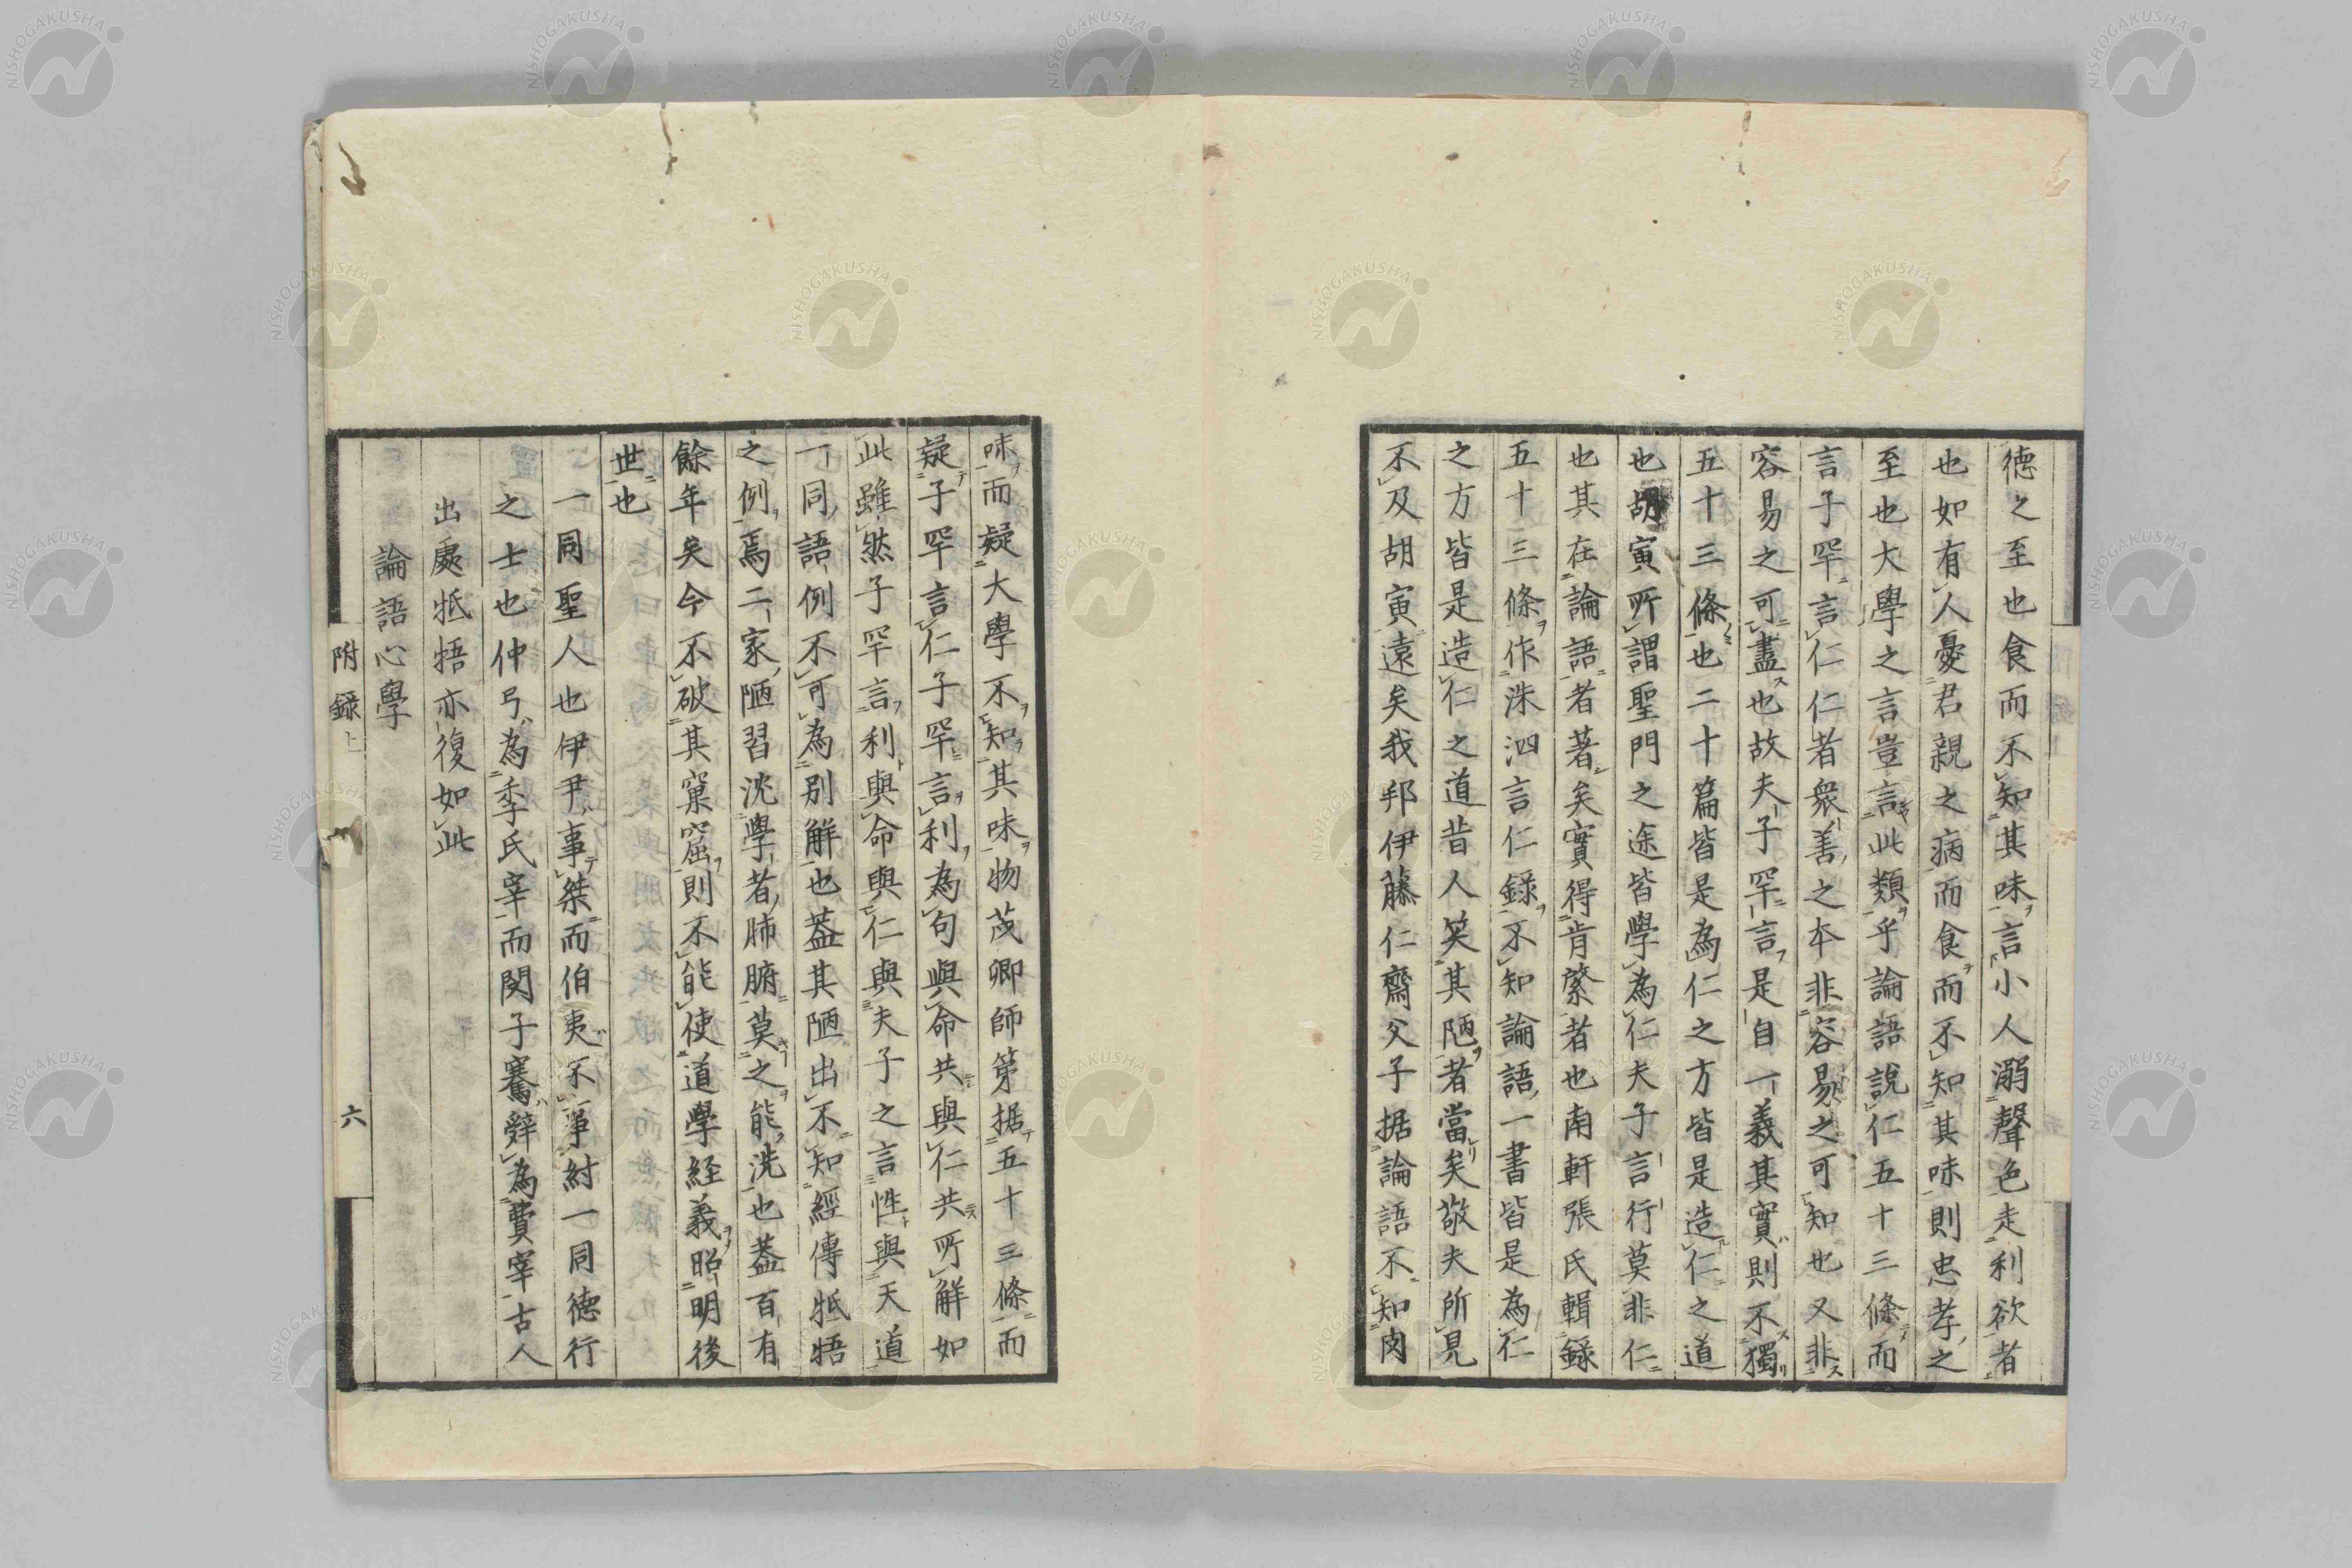 德之至也食而不知其味言小人溺聲色走利欲者
也如有人憂君親之病而食而不知其味則忠孝之
至也大學之言豈言此類乎論語說仁五十三條而
言子罕言仁仁者衆善之本非容易之可知也又非
容易之可盡也故夫子罕言是自一義其實則不獨
五十三條也二十篇皆是為仁之方皆是造仁之道
也胡寅所謂聖門之途皆學為仁夫子言行莫非仁
也其在論語者著矣實得肯綮者也南軒張氏輯錄
五十三條作洙泗言仁錄不知論語一書皆是為仁
之方皆是造仁之道昔人笑其陋者當矣敬夫所見
不及胡寅遠矣我邦伊藤仁齋父子据論語不知肉
味而疑大學不知其味物茂卿師第据五十三條而
疑子罕言仁子罕言利為句與命共與仁共所解如
此雖然子罕言利與命與仁與夫子之言性與天道
一同語例不可為別解也蓋其陋出不知經傳牴牾
之例焉二家陋習沈學者肺腑莫之能洗也蓋百有
餘年矣今不破其窠窟則不能使道學經義昭明後
世也
一同聖人也伊尹事桀而伯夷不事紂一同德行
之士也仲弓為季氏宰而閔子騫辭為費宰古人
出處牴牾亦復如此
論語心學
附錄上
六
NISHOGAKUSHA